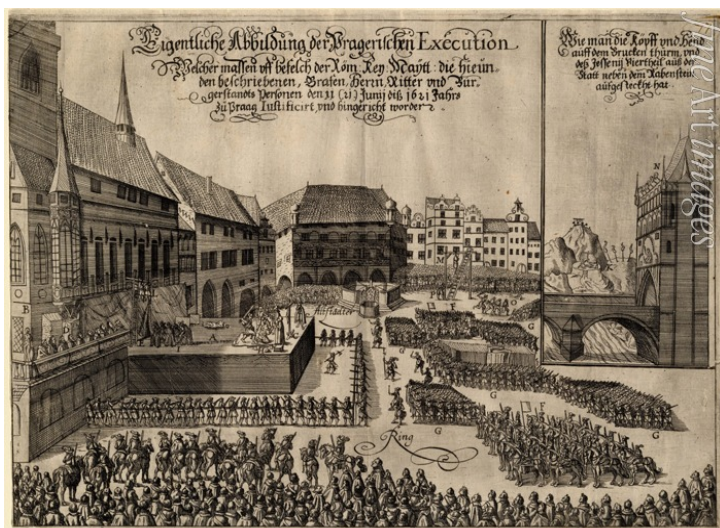 Eigentliche Abbildung der Pragerischen Execution
Welcher massen uff befelch der Röm. Key. Maytt. die hieun,
den beschriebenen, Grafen, Herrn, Ritter vnd Bur,
gerstandts Personen den 11 (21) Junij diß 1621 Jahrs
zu Praag Iustificirt, vnd hingericht worden
Wie man die Köpff vnd Hend
auff dem Brucken thurm, vnd
deß Jessenij Viertheil aus der
Statt neben dem Rabenstein
auffgesteckht hat.
Altstädter
Ring
N
M
B
D
F
G
G
G
G
G
G
Fine Art Images